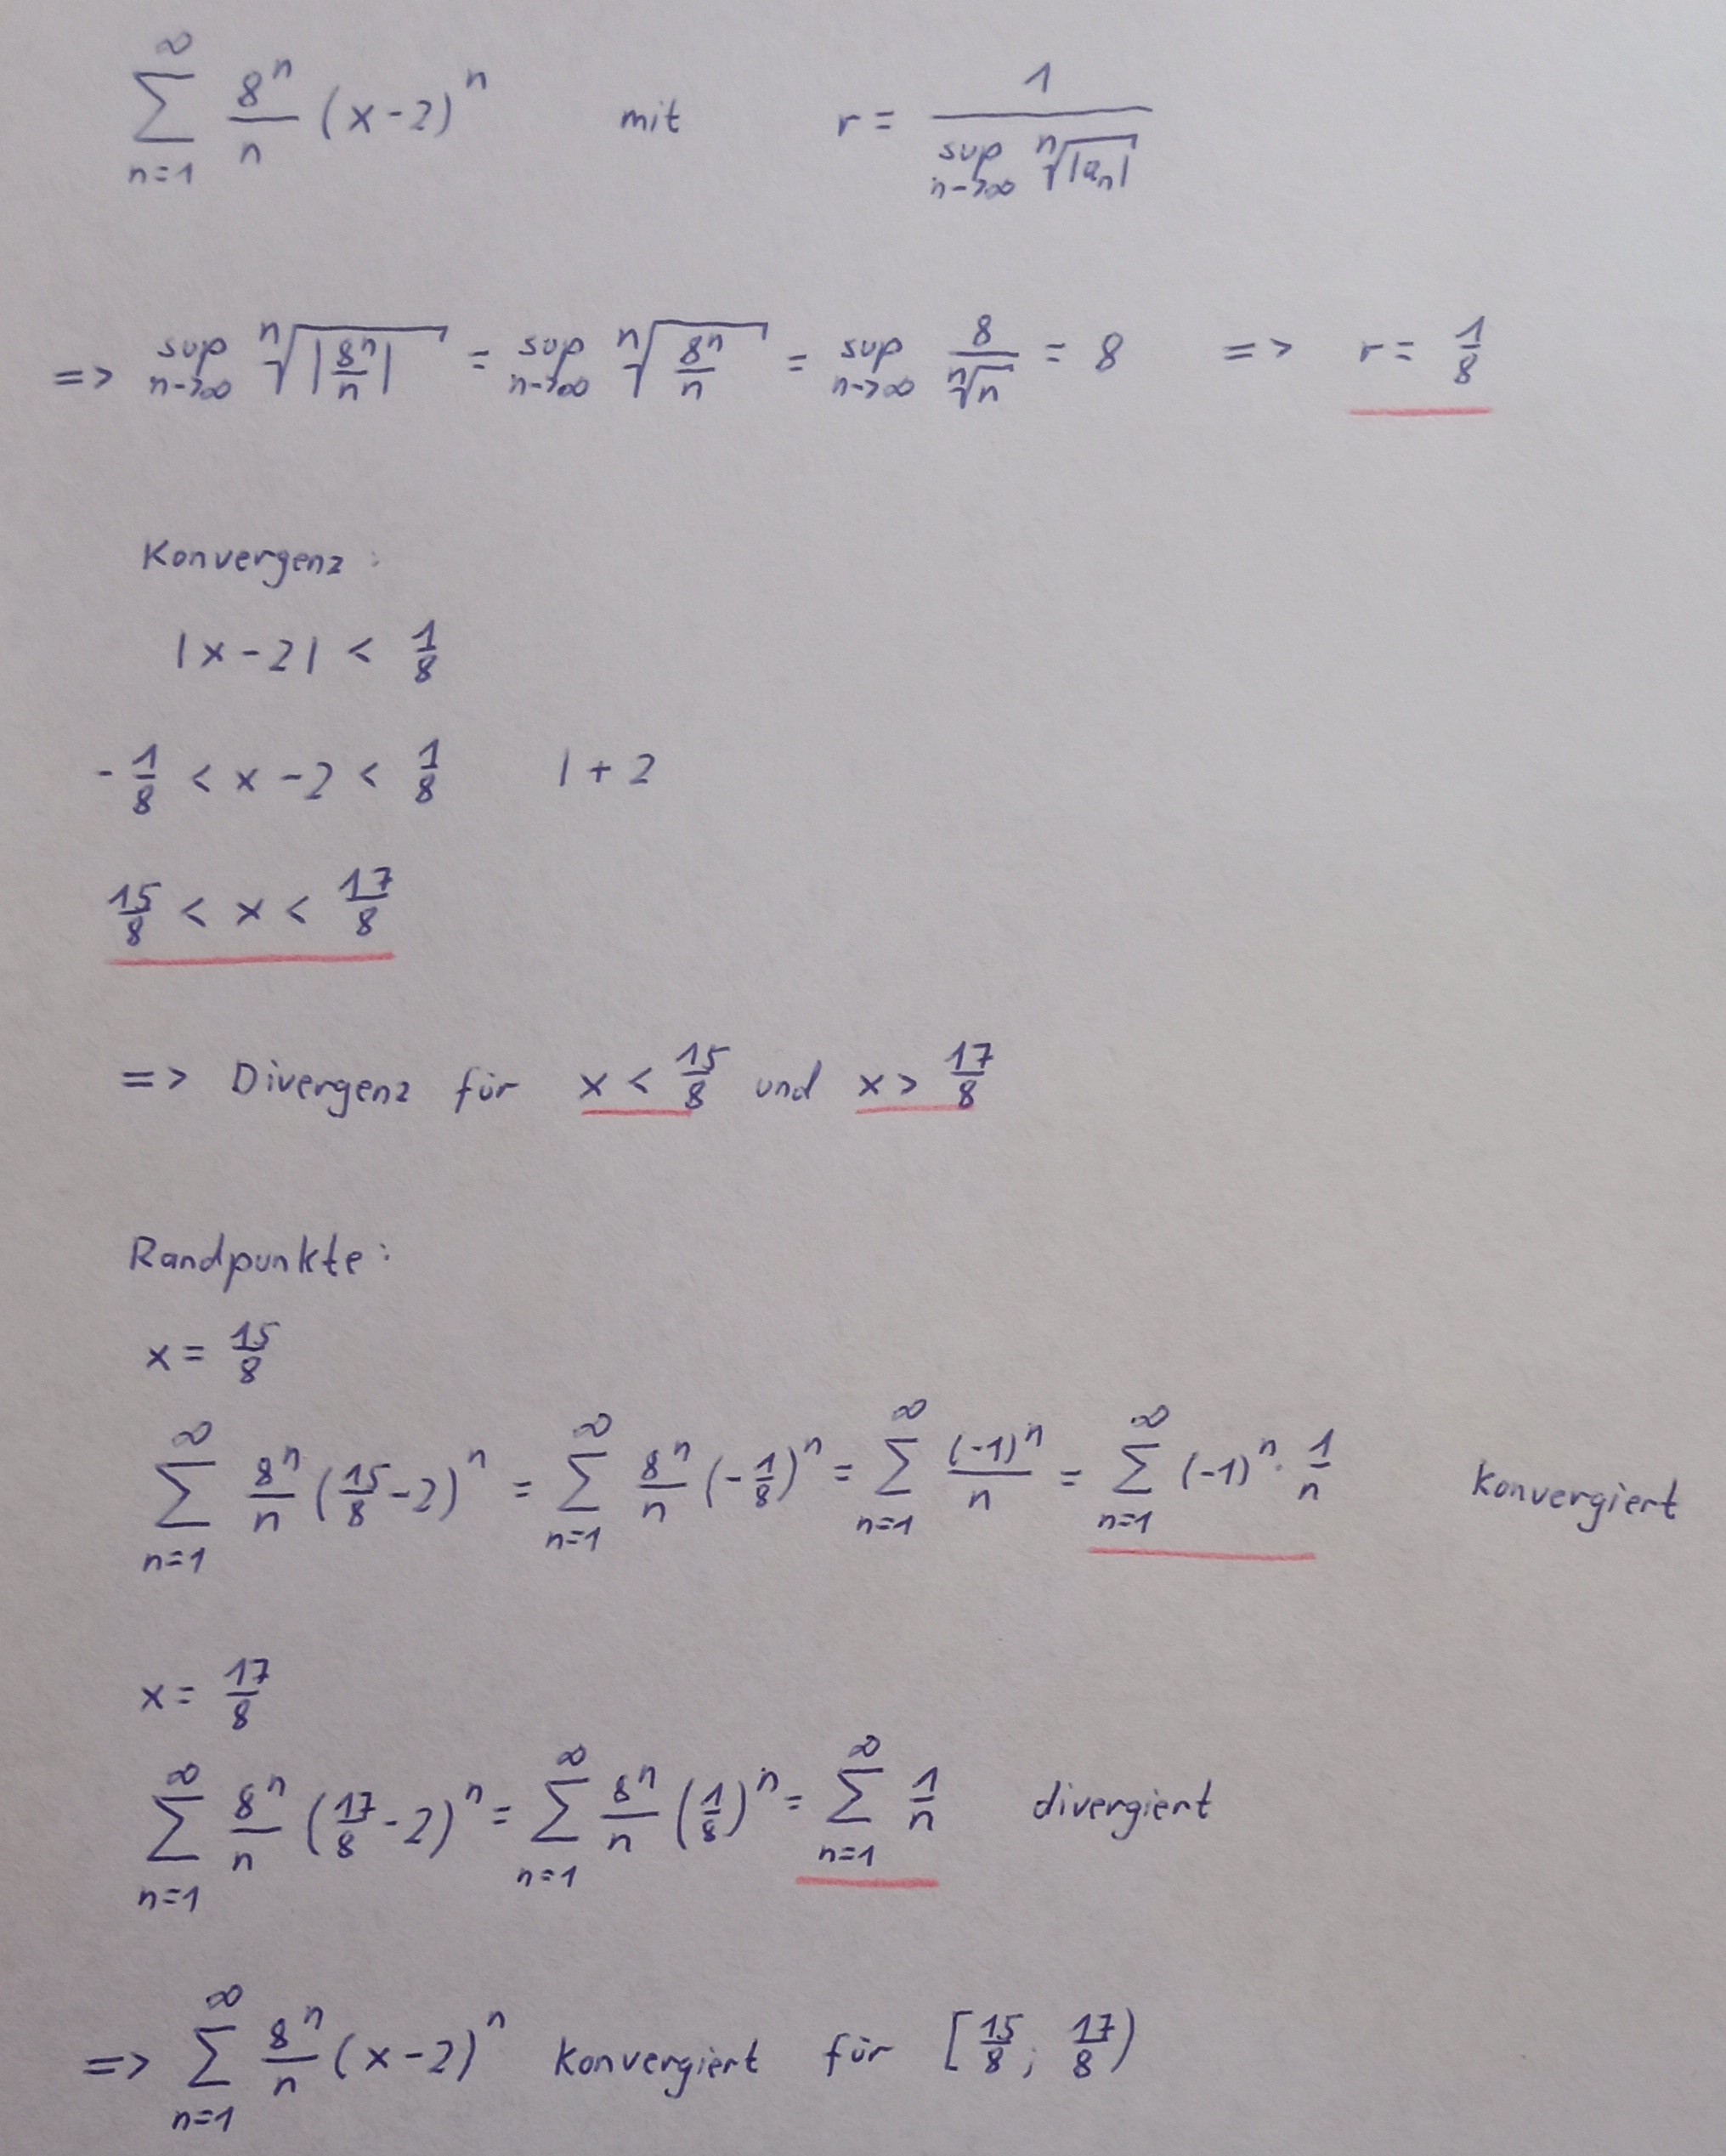 ∑_{n=1}^{∞} 8^n/n (x-2)^n mit r = 1/(sup_{n->∞} ⁿ√|a_n|)
=> sup_{n->∞} ⁿ√|8^n/n| = sup_{n->∞} ⁿ√(8^n/n) = sup_{n->∞} 8/ⁿ√n = 8 => r = 1/8
Konvergenz:
|x-2| < 1/8
-1/8 < x-2 < 1/8 |+2
15/8 < x < 17/8
=> Divergenz für x < 15/8 und x > 17/8
Randpunkte:
x = 15/8
∑_{n=1}^{∞} 8^n/n (15/8-2)^n = ∑_{n=1}^{∞} 8^n/n (-1/8)^n = ∑_{n=1}^{∞} (-1)^n/n = ∑_{n=1}^{∞} (-1)^n · 1/n konvergiert
x = 17/8
∑_{n=1}^{∞} 8^n/n (17/8-2)^n = ∑_{n=1}^{∞} 8^n/n (1/8)^n = ∑_{n=1}^{∞} 1/n divergiert
=> ∑_{n=1}^{∞} 8^n/n (x-2)^n konvergiert für [15/8; 17/8)